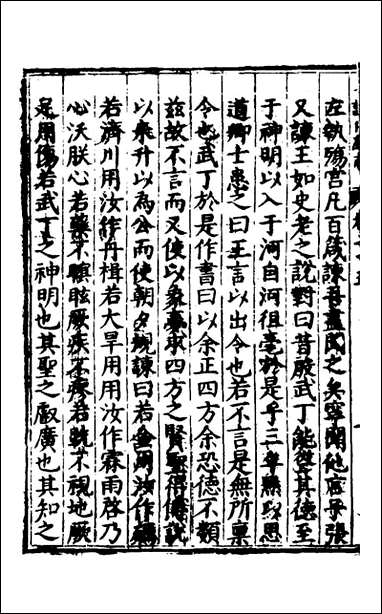 左執殤宮凡百箴諫吾盡聞之矣寧聞他言乎張
又諫王如史老之說對曰昔殷武丁能聳其德至
于神明以入于河自河徂亳於是乎三年默以思
道卿士患之曰王言以出令也若不言是無所稟
令也武丁於是作書曰以余正四方余恐德不類
茲故不言而又使以象夢求四方之賢聖得傅說
以來升以為公而使朝夕規諫曰若金用汝作礪
若濟川用汝作舟楫若大旱用用汝作霖雨啓乃
心沃朕心若藥不瞑眩厥疾不瘳若跣不視地厥
足用傷若武丁之神明也其聖之叡廣也其知之